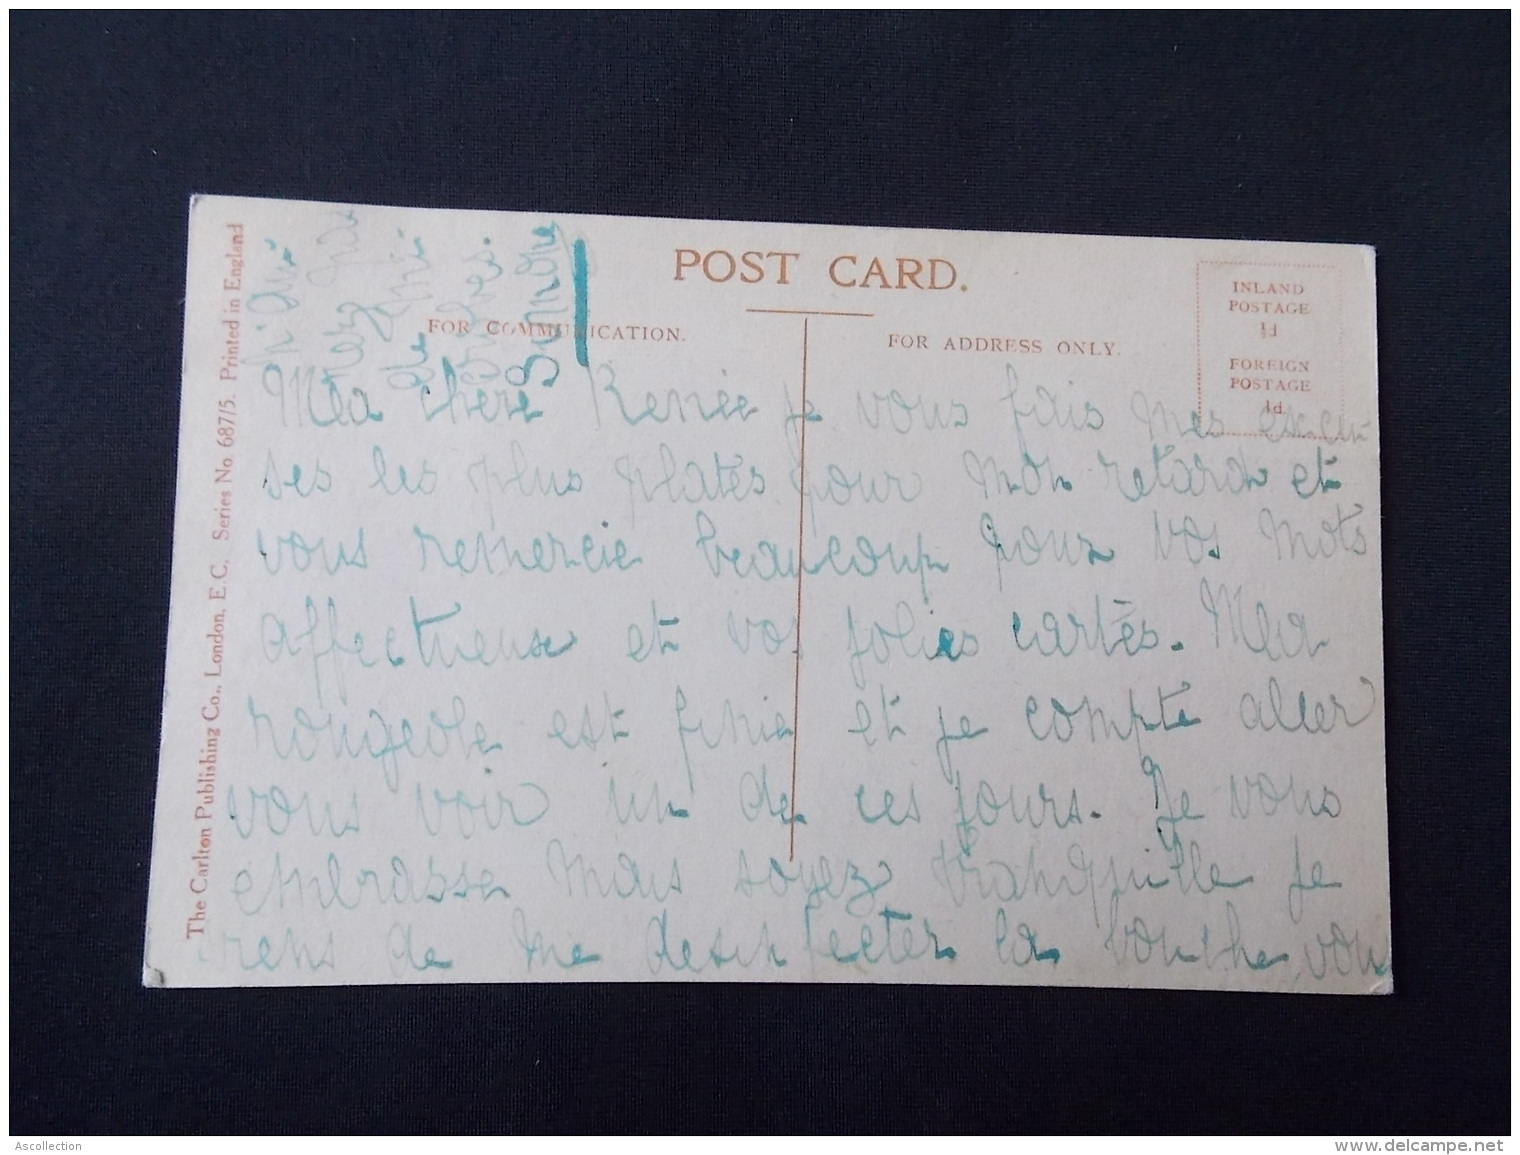 POST CARD.
FOR COMMUNICATION.
FOR ADDRESS ONLY.
INLAND
POSTAGE
½d
FOREIGN
POSTAGE
1d.
The Carlton Publishing Co., London, E.C. Series No 687/5. Printed in England
Ma chère Renée je vous fais mes excu
ses les plus plates pour mon retard et
vous remercie beaucoup pour vos mots
affectueux et vos jolies cartes. Ma
rougeole est finie et je compte aller
vous voir un de ces jours. Je vous
embrasse mais soyez tranquille je
viens de me desinfecter la bouche, vou
n'aurez
pas
de
microbes.
Ascollection
www.delcampe.net